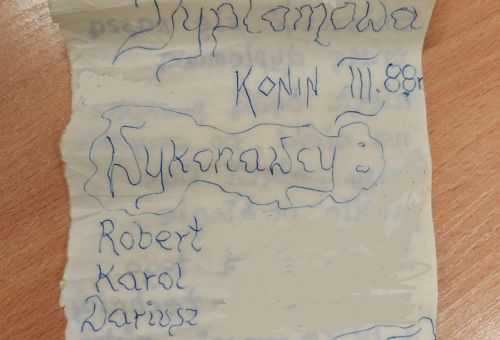 Dyplomowa
KONIN III.88r
Wykonawcy:
Robert
Karol
Dariusz